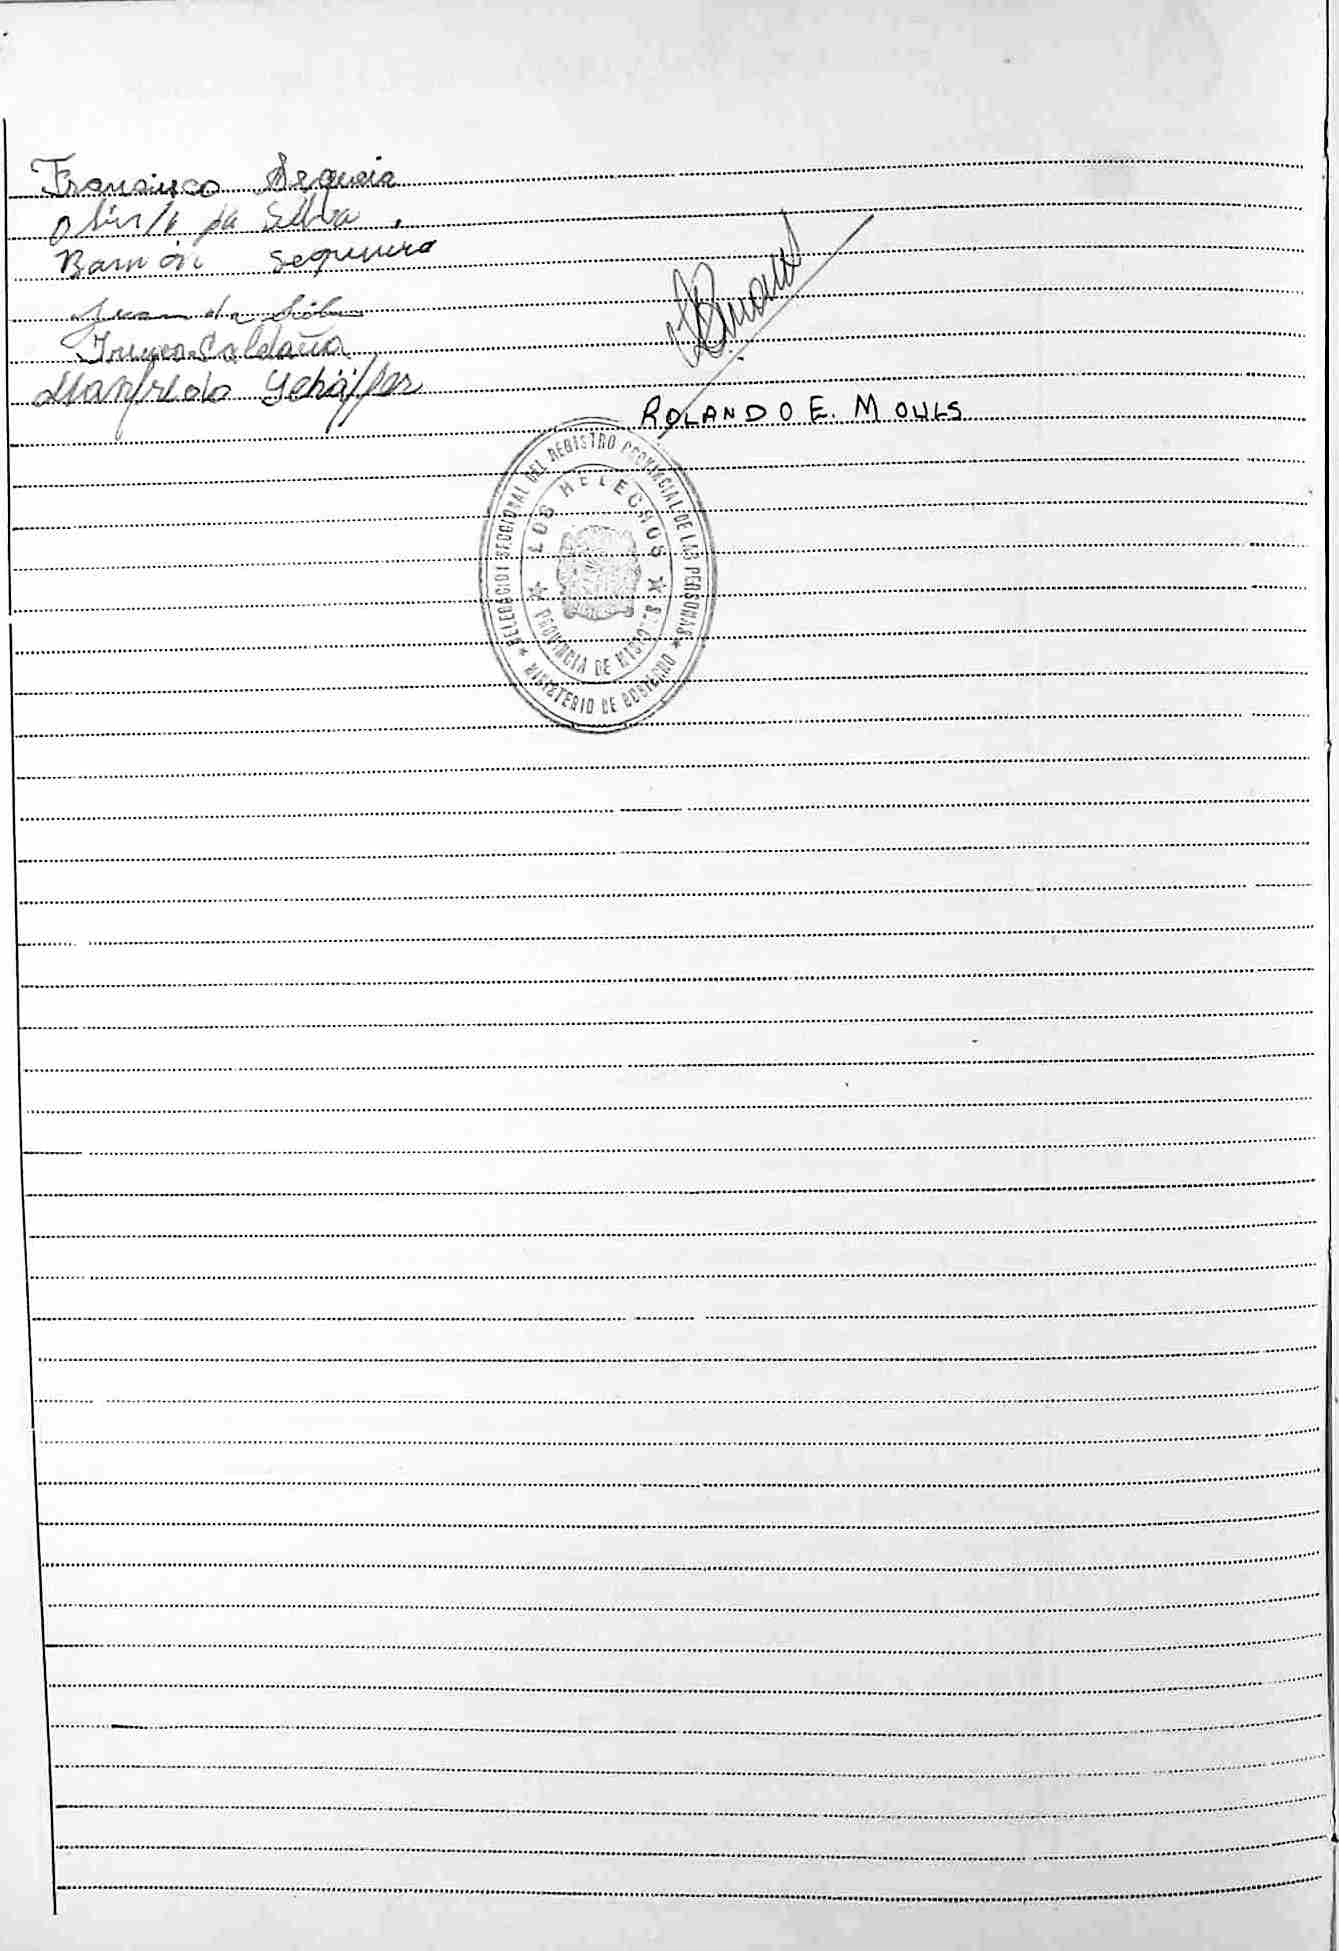 Francisco Sequeia
da Silva
Ramón Sequeira
Juan da Silva
Saldaña
Manfredo Schäffer
ROLANDO E. MOULS
DELEGACION SECCIONAL DEL REGISTRO PROVINCIAL DE LAS PERSONAS
LOS HELECHOS
PROVINCIA DE MISIONES
MINISTERIO DE GOBIERNO